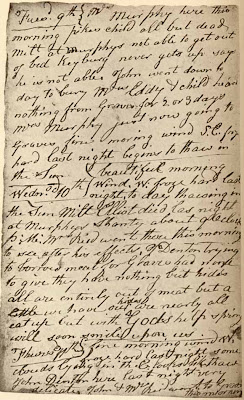 Tuesd. 9th Mr Murphy here this
morning pikes child all but dead,
Milt at Murphys not able to get out
of bed Keyburg never gets up say
he is not able. John went down to
day to bury Mrs Eddy & child heard
nothing from Graves for 2 or 3 days
Mrs Murphy just now going to
Graves fine morning wind S.E. froze
hard last night begins to thaw in
the Sun
Wednd. 10th beautiful morning
Wind W. froze hard last
night to day thawing in
the Sun Milt Elliot died las night
at Murphys Shanty about 9 Oclock
P.M. Mrs Reid went there this morning
to see after his effects J Denton trying
to borrow meat for Graves had none
to give they have nothing but hides
all are entirely out of meat but a
little we have our hides are nearly all
eat up but with Gods help spring
will soon smile upon us
Thursd 11th fine morning wind W.
froze hard last night some
clouds lying in the E looks like thaw
John Denton here las night very
delicate John & Mrs Reid went to Graves
this morning